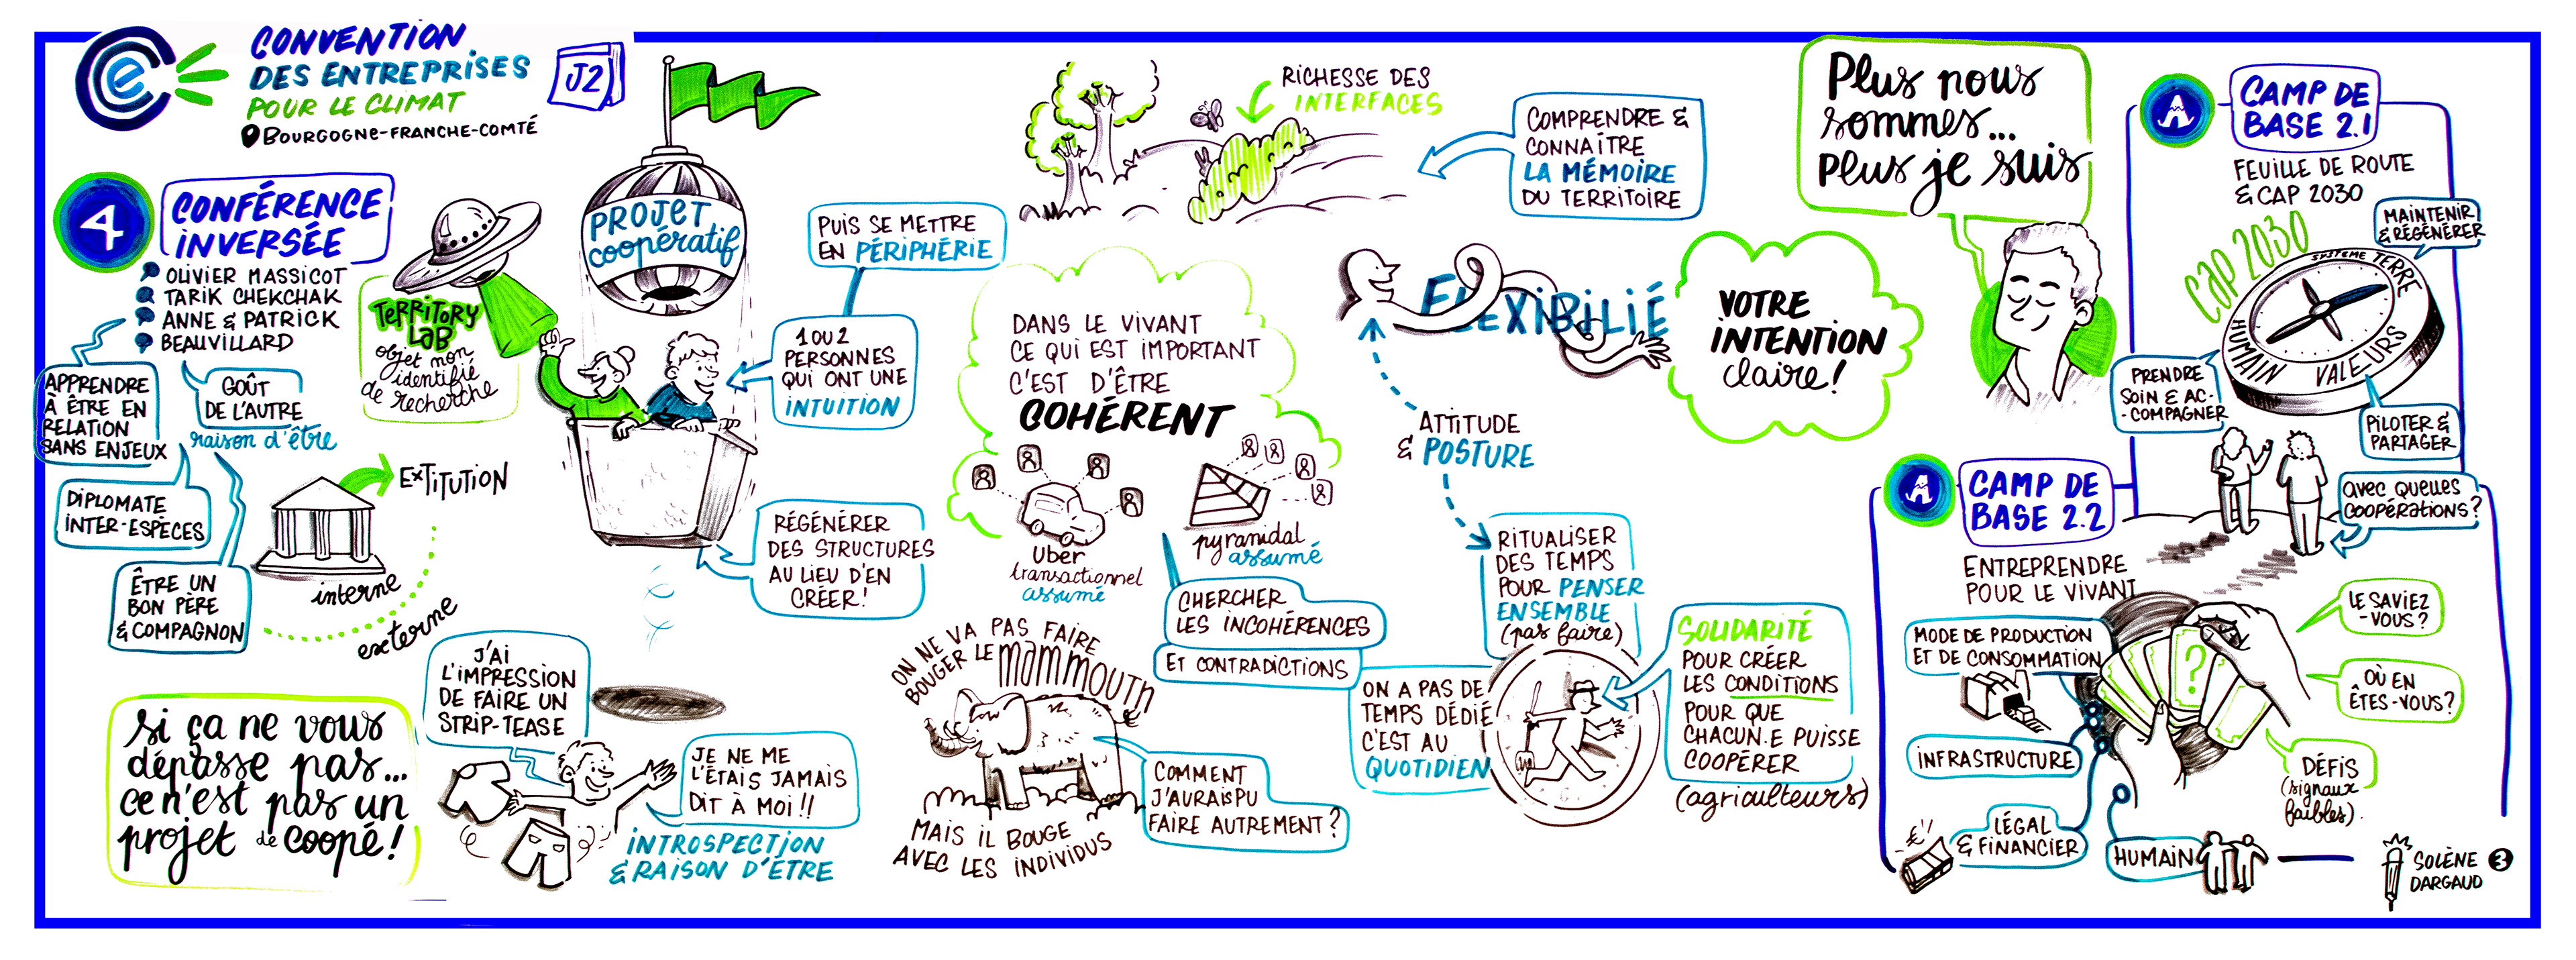 CONVENTION
DES ENTREPRISES
POUR LE CLIMAT
BOURGOGNE-FRANCHE-COMTÉ
J2
4
CONFÉRENCE
INVERSÉE
OLIVIER MASSICOT
TARIK CHEKCHAK
ANNE & PATRICK
BEAUVILLARD
APPRENDRE
À ÊTRE EN
RELATION
SANS ENJEUX
GOÛT
DE L'AUTRE
raison d'être
DIPLOMATE
INTER-ESPÈCES
ÊTRE UN
BON PÈRE
& COMPAGNON
EXTITUTION
interne
externe
TERRITORY
LAB
objet non
identifié
de recherche
PROJET
coopératif
PUIS SE METTRE
EN PÉRIPHÉRIE
1 OU 2
PERSONNES
QUI ONT UNE
INTUITION
RÉGÉNÉRER
DES STRUCTURES
AU LIEU D'EN
CRÉER!
si ça ne vous
dépasse pas...
ce n'est pas un
projet de coopé!
J'AI
L'IMPRESSION
DE FAIRE UN
STRIP-TEASE
JE NE ME
L'ÉTAIS JAMAIS
DIT À MOI!!
INTROSPECTION
& RAISON D'ÊTRE
RICHESSE DES
INTERFACES
COMPRENDRE &
CONNAÎTRE
LA MÉMOIRE
DU TERRITOIRE
DANS LE VIVANT
CE QUI EST IMPORTANT
C'EST D'ÊTRE
COHÉRENT
Uber
transactionnel
assumé
pyramidal
assumé
CHERCHER
LES INCOHÉRENCES
ET CONTRADICTIONS
ON NE VA PAS FAIRE
BOUGER LE mammouth
MAIS IL BOUGE
AVEC LES INDIVIDUS
COMMENT
J'AURAIS PU
FAIRE AUTREMENT?
FLEXIBILIÉ
ATTITUDE
& POSTURE
RITUALISER
DES TEMPS
POUR PENSER
ENSEMBLE
(pas faire)
ON A PAS DE
TEMPS DÉDIÉ
C'EST AU
QUOTIDIEN
SOLIDARITÉ
POUR CRÉER
LES CONDITIONS
POUR QUE
CHACUN.E PUISSE
COOPÉRER
(agriculteurs)
VOTRE
INTENTION
claire!
Plus nous
sommes...
plus je suis
CAMP DE
BASE 2.1
FEUILLE DE ROUTE
& CAP 2030
CAP 2030
MAINTENIR
& RÉGÉNÉRER
SYSTÈME TERRE
HUMAIN
VALEURS
PRENDRE
SOIN & AC-
-COMPAGNER
PILOTER &
PARTAGER
AVEC QUELLES
COOPÉRATIONS?
CAMP DE
BASE 2.2
ENTREPRENDRE
POUR LE VIVANT
MODE DE PRODUCTION
ET DE CONSOMMATION
INFRASTRUCTURE
LÉGAL
& FINANCIER
HUMAIN
?
LE SAVIEZ
-VOUS?
OÙ EN
ÊTES-VOUS?
DÉFIS
(signaux
faibles).
SOLÈNE 3
DARGAUD